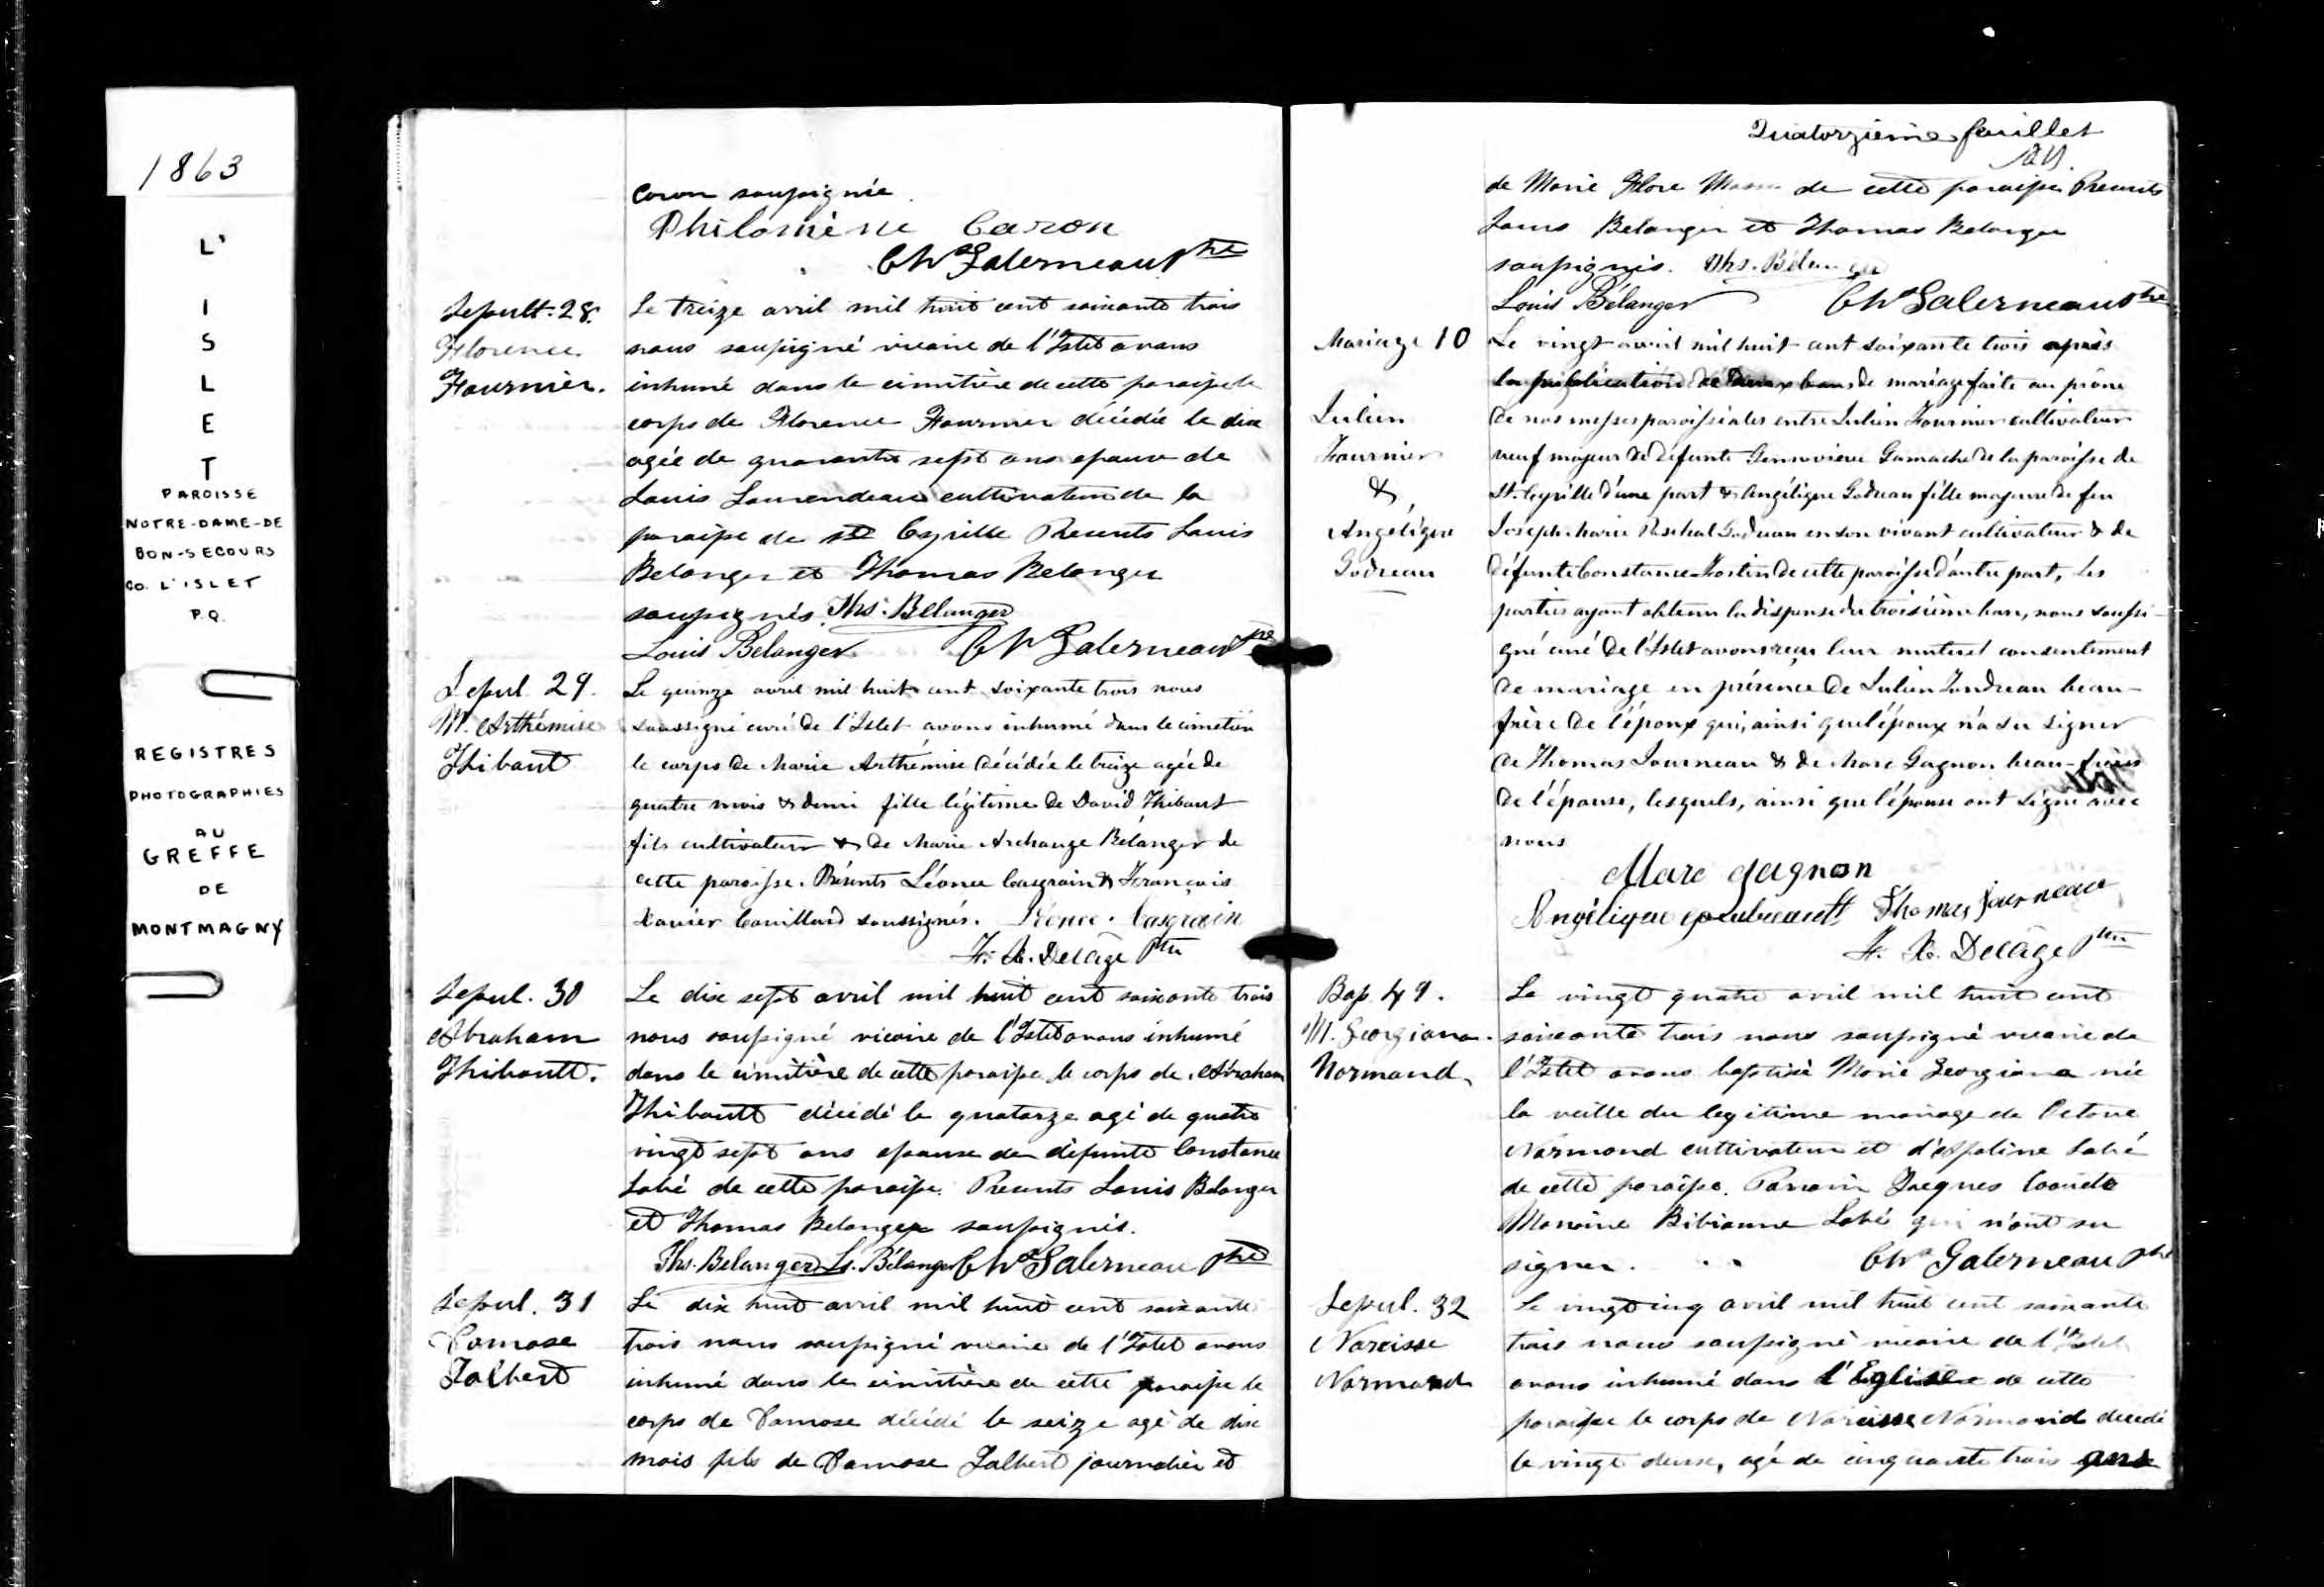 1863
L'
I
S
L
E
T
PAROISSE
NOTRE-DAME-DE
BON-SECOURS
CO. L'ISLET
P.Q.
REGISTRES
PHOTOGRAPHIES
AU
GREFFE
DE
MONTMAGNY
Caron soussignée.
Philomène Caron
Chs Galerneau Ptre
Sepult. 28.
Florence
Fournier.
Le treize avril mil huit cent soixante trois
nous soussigné vicaire de l'Islet avons
inhumé dans le cimitière de cette paroisse le
corps de Florence Fournier décédée le dix
agée de quarante sept ans epouse de
Louis Laurendeau cultivateur de la
paroisse de St Cyrille Presents Louis
Belanger et Thomas Belanger
soussignés. Ths. Bélanger
Louis Bélanger Chs Galerneau Ptre
Sepul. 29.
M. Arthémise
Thibaut
Le quinze avril mil huit cent soixante trois nous
soussigné curé de l'Islet avons inhumé dans le cimetière
le corps de Marie Arthémise décédée le treize agée de
quatre mois & demi fille légitime de David Thibaut
fils cultivateur & de Marie Archange Bélanger de
cette paroisse. Présents Léonce Casgrain & François
Xavier Couillard soussignés. Léonce Casgrain
F. X. Delâge Ptre
Sepul. 30
Abraham
Thibault.
Le dix sept avril mil huit cent soixante trois
nous soussigné vicaire de l'Islet avons inhumé
dans le cimitière de cette paroisse le corps de Abraham
Thibault décédé le quatorze agé de quatre
vingt sept ans epoux de défunte Constance
Labé de cette paroisse. Presents Louis Belanger
et Thomas Belanger soussignés.
Ths. Belanger Ls. Bélanger Chs Galerneau Ptre
Sepul. 31
Damase
Jalbert
Le dix huit avril mil huit cent soixante
trois nous soussigné vicaire de l'Islet avons
inhumé dans le cimitière de cette paroisse le
corps de Damase décédé le seize agé de dix
mois fils de Damase Jalbert journalier et
Quatorzieme feuillet
de Marie Flore de cette paroisse Presents
Louis Belanger et Thomas Belanger
soussignés. Ths. Bélanger
Louis Bélanger Chs Galerneau Ptre
Mariage 10
Julien
Fournier
&
Angélique
Godreau
Le vingt avril mil huit cent soixante trois après
la publication de deux bans de mariage faite au prône
de nos messes paroissiales entre Julien Fournier cultivateur
veuf majeur de défunte Genneviève Gamache de la paroisse de
St. Cyrille d'une part & Angélique Godreau fille majeure de feu
Joseph-Marie Paschal Godreau en son vivant cultivateur & de
défunte Constance Fortin de cette paroisse d'autre part, les
parties ayant obtenu la dispense du troisième ban, nous soussi-
gné curé de l'Islet avons reçu leur mutuel consentement
de mariage en présence de Julien Jondreau beau-
frère de l'époux qui, ainsi que l'époux n'a su signer
de Thomas Journeau & de Marc Gagnon beau-frères
de l'épouse, lesquels, ainsi que l'épouse ont signé avec
nous
Marc gagnon
Angélique Thomas Journeau
F. X. Delâge Ptre
Bap. 49.
M. Georgiana
Normand
Le vingt quatre avril mil huit cent
soixante trois nous soussigné vicaire de
l'Islet avons baptisé Marie Georgiana née
la veille du legitime mariage de Octave
Normand cultivateur et d'Appoline Labé
de cette paroisse. Parrain Jacques
Marraine Bibianne Labé qui n'ont su
signer. Chs Galerneau Ptre
Sepul. 32
Narcisse
Normand
Le vingt cinq avril mil huit cent soixante
trois nous soussigné vicaire de l'Islet
avons inhumé dans l'Eglise de cette
paroisse le corps de Narcisse Normand decedé
le vingt deux, agé de cinquante trois ans